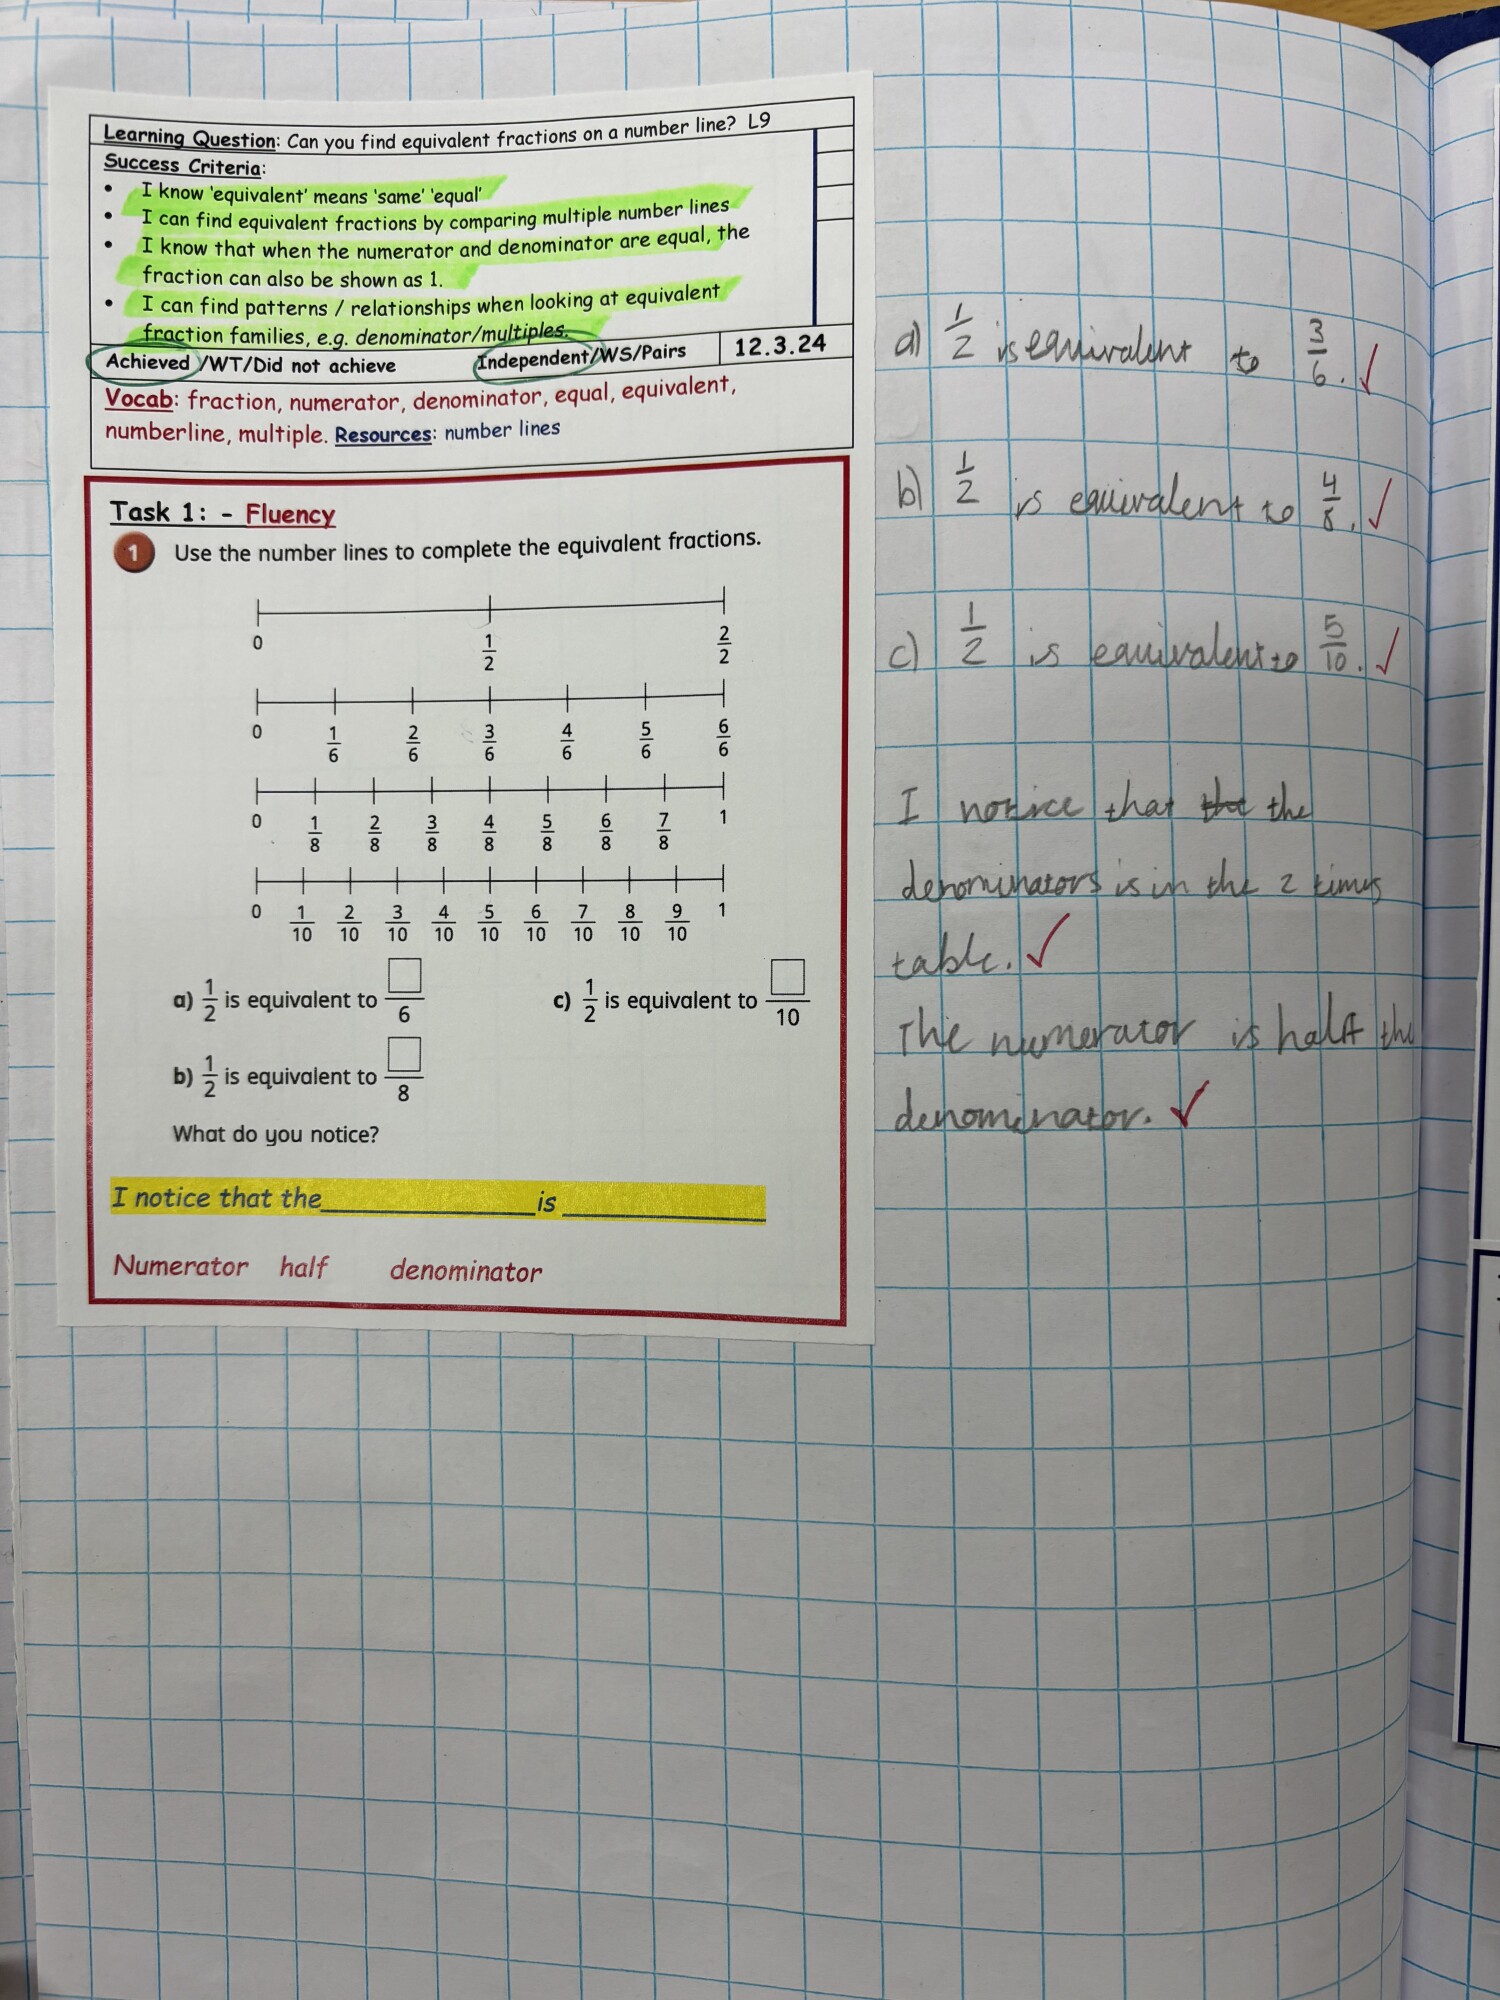 Learning Question: Can you find equivalent fractions on a number line? L9
Success Criteria:
• I know 'equivalent' means 'same' 'equal'
• I can find equivalent fractions by comparing multiple number lines
• I know that when the numerator and denominator are equal, the
fraction can also be shown as 1.
• I can find patterns / relationships when looking at equivalent
fraction families, e.g. denominator/multiples.
Achieved /WT/Did not achieve Independent/WS/Pairs 12.3.24
Vocab: fraction, numerator, denominator, equal, equivalent,
numberline, multiple. Resources: number lines
Task 1: - Fluency
1 Use the number lines to complete the equivalent fractions.
0 1/2 2/2
0 1/6 2/6 3/6 4/6 5/6 6/6
0 1/8 2/8 3/8 4/8 5/8 6/8 7/8 1
0 1/10 2/10 3/10 4/10 5/10 6/10 7/10 8/10 9/10 1
a) 1/2 is equivalent to □/6
c) 1/2 is equivalent to □/10
b) 1/2 is equivalent to □/8
What do you notice?
I notice that the_______________is _______________
Numerator half denominator
a) 1/2 is equivalent to 3/6. ✓
b) 1/2 is equivalent to 4/8. ✓
c) 1/2 is equivalent to 5/10. ✓
I notice that the the
denominators is in the 2 times
table. ✓
The numerator is half the
denominator. ✓